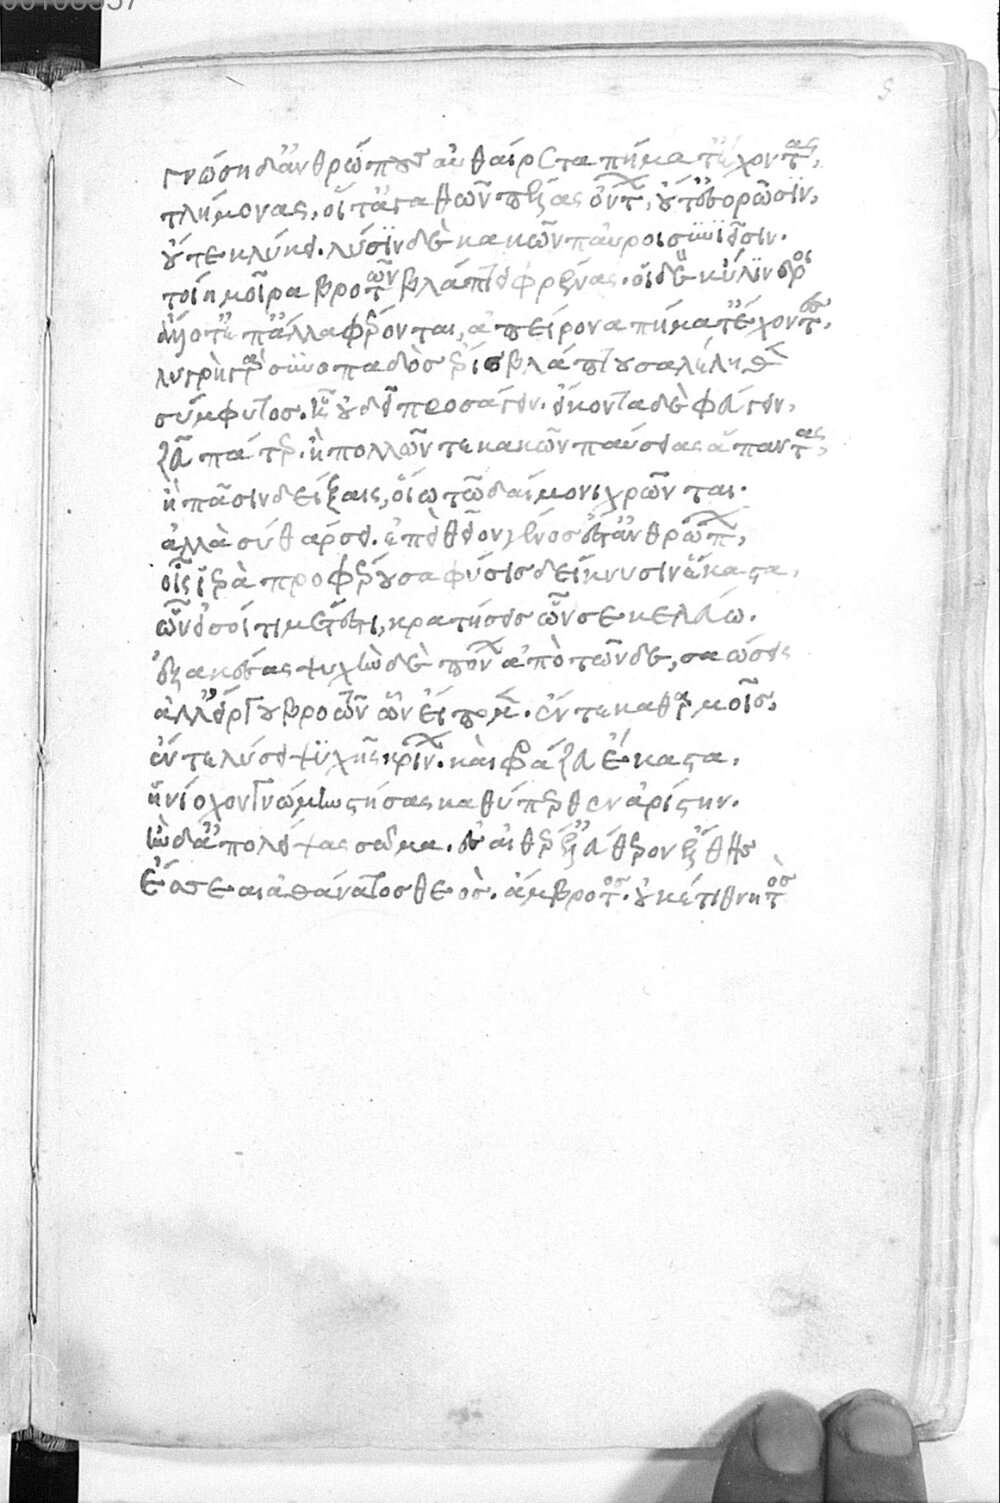 γνώση δ' ἀνθρώπους αὐθαίρετα πήματ' ἔχοντας,
τλήμονας, οἵ τ' ἀγαθῶν πέλας ὄντων, οὔτ' ἐσορῶσϊν,
οὔτε κλύουσι. λύσϊν δὲ κακῶν παῦροι συνϊᾶσιν.
τοίη μοῖρα βροτῶν βλάπτει φρένας. οἱ δὲ κυλίνδροι
ἄλλοτ' ἐπ' ἄλλα φέρονται, ἀπείρονα πήματ' ἔχοντες,
λυγρὴ γὰρ συνοπαδὸς ἔρις βλάπτουσα λέληθε
σύμφυτος. ἣν οὐ δεῖ προσάγειν. εἴκοντα δὲ φεύγειν,
ζεῦ πάτερ. ἢ πολλῶν τε κακῶν παύσειας ἅπαντας,
ἢ πᾶσιν δείξαις, οἵω τῶ δαίμονι χρῶνται.
ἀλλὰ σὺ θάρσει. ἐπεὶ θεῖον γένος ἐστ' ἀνθρώπων,
οἷς ἱερὰ προφέρουσα φύσις δείκνυσιν ἕκαστα,
ὧν εἰ σοί τι μέτεστι, κρατήσεις ὧν σε κελεύω.
ἐξακέσας ψυχὴν δὲ πόνων ἀπὸ τῶνδε, σαώσεις
ἀλλ' εἴργου βρωτῶν ὧν εἴπομεν. ἔν τε καθαρμοῖς,
ἔν τε λύσει ψϋχῆς κρίνων. καὶ φράζευ ἕκαστα,
ἡνίοχον γνώμην στήσας καθύπερθεν ἀρίστην.
ἢν δ' ἀπολείψας σῶμα. ἐς αἰθέρ' ἐλεύθερον ἔλθης
ἔσσεαι ἀθάνατος θεὸς. ἄμβροτος. οὐκέτι θνητὸς